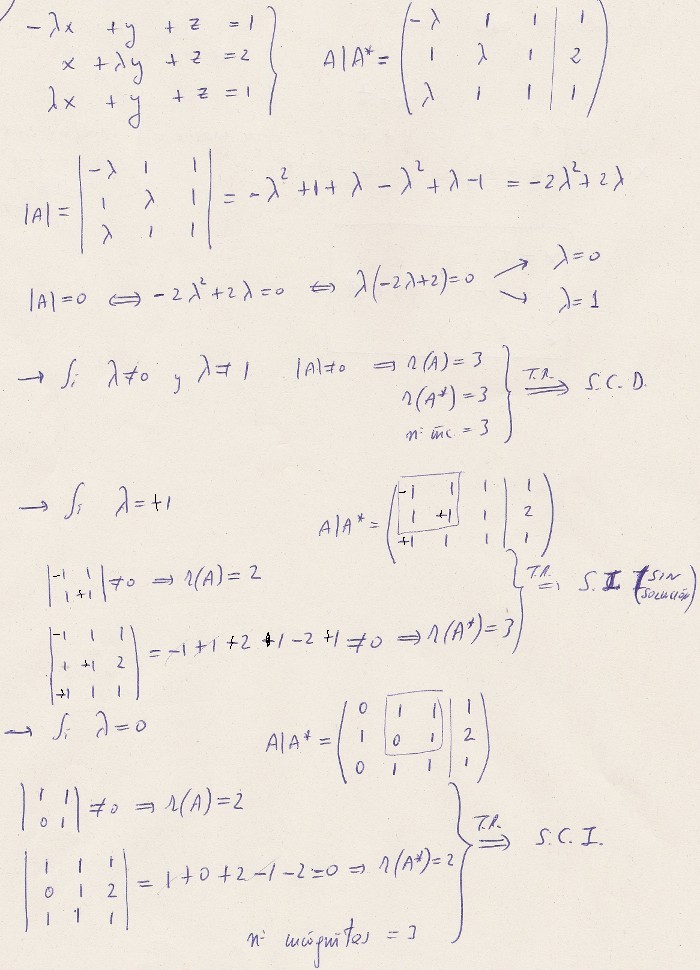 -λx + y + z = 1
x + λy + z = 2
λx + y + z = 1
A|A* =
-λ 1 1 | 1
1 λ 1 | 2
λ 1 1 | 1
|A| =
-λ 1 1
1 λ 1
λ 1 1
= -λ² + 1 + λ - λ² + λ - 1 = -2λ² + 2λ
|A| = 0 ⇔ -2λ² + 2λ = 0 ⇔ λ(-2λ+2) = 0
λ = 0
λ = 1
→ Si λ ≠ 0 y λ ≠ 1 |A| ≠ 0 ⇒ r(A) = 3
r(A*) = 3
nº inc = 3
T.R. ⇒ S.C.D.
→ Si λ = +1
A|A* =
-1 1 1 | 1
1 +1 1 | 2
+1 1 1 | 1
-1 1
1 +1
≠ 0 ⇒ r(A) = 2
-1 1 1
1 +1 2
+1 1 1
= -1 + 1 + 2 + 1 - 2 + 1 ≠ 0 ⇒ r(A*) = 3
T.R. ⇒ S.I (SIN SOLUCIÓN)
→ Si λ = 0
A|A* =
0 1 1 | 1
1 0 1 | 2
0 1 1 | 1
1 1
0 1
≠ 0 ⇒ r(A) = 2
1 1 1
0 1 2
1 1 1
= 1 + 0 + 2 - 1 - 2 = 0 ⇒ r(A*) = 2
nº incógnitas = 3
T.R. ⇒ S.C.I.